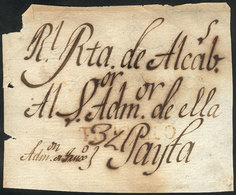 Rl Rta. de Alcab.s
Al Sor Admor de ella
Payta
Admon